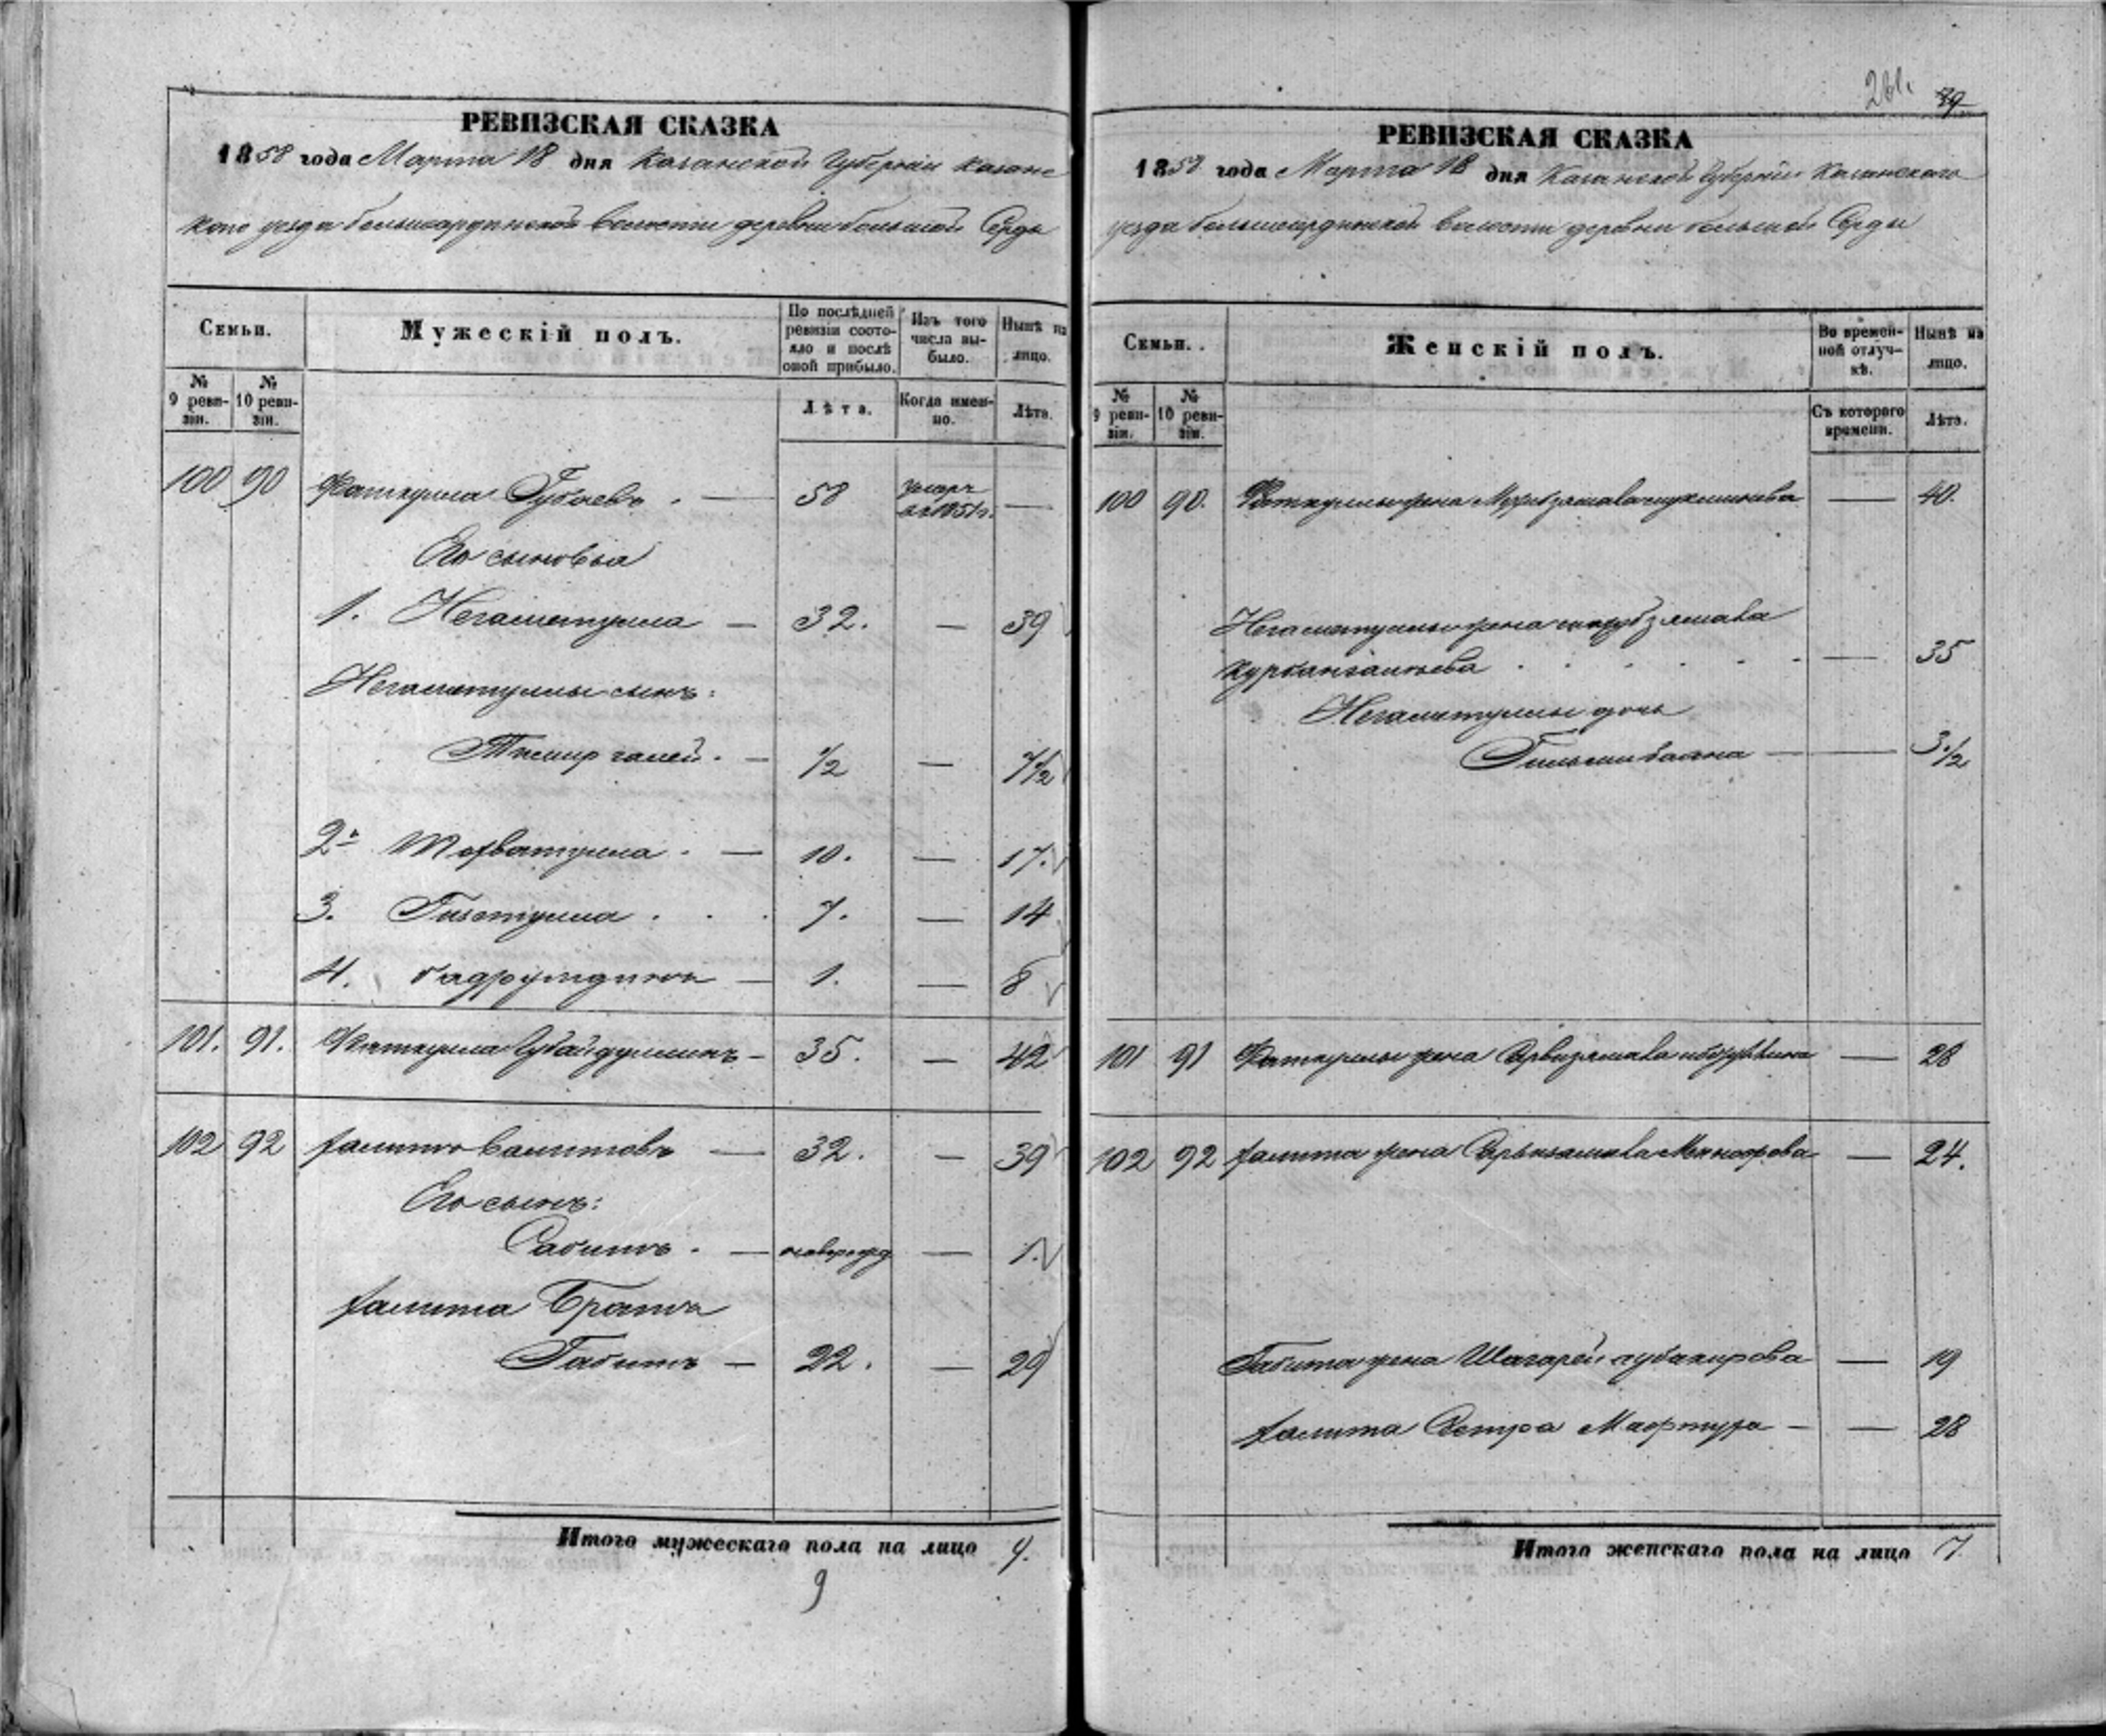 РЕВИЗСКАЯ СКАЗКА
1858 года Марта 18 дня Казанской Губернiи Казанс
каго уезда большесардинской волости деревни большой Серды
Семьи.
Мужескiй полъ.
По послѣдней ревизiи состояло и послѣ оной прибыло.
Изъ того числа выбыло.
Нынѣ на лицо.
№ 9 ревизiи.
№ 10 ревизiи.
Лѣта.
Когда именно.
Лѣта.
100 90 Фаткулла Губаевъ . — 58 умеръ въ 1851 г. —
Его сыновья
1. Негаметулла — 32. — 39
Негаметуллы сынъ:
Тимир галей . — 1/2 — 7 1/2
2й . — 10. — 17.
3. Гизетулла . . . 7. — 14
4. бадрутдинъ — 1. — 8
101. 91. Фаткулла Губайдуллинъ — 35. — 42
102 92 Халитъ Валитовъ — 32. — 39
Его сынъ:
Сабитъ . — новорожд — 1.
Халита Братъ
Габитъ — 22. — 29
Итого мужескаго пола на лицо 9.
9
261. 39
РЕВИЗСКАЯ СКАЗКА
1858 года Марта 18 дня Казанской Губернiи Казанскаго
уезда большесардинской волости деревни большой Серды
Семьи.
Женскiй полъ.
Во временной отлучкѣ.
Нынѣ на лицо.
№ 9 ревизiи.
№ 10 ревизiи.
Съ котораго времени.
Лѣта.
100 90. Фаткуллы жена — 40.
Негаметуллы жена
Курбангалиева . . . . . — 35
Негаметуллы дочь
Гильмибаяна — — 3 1/2
101 91 Фаткуллы жена — 28
102 92 Халита жена — 24.
Габита жена — 19
Халита Сестра — — 28
Итого женскаго пола на лицо 7